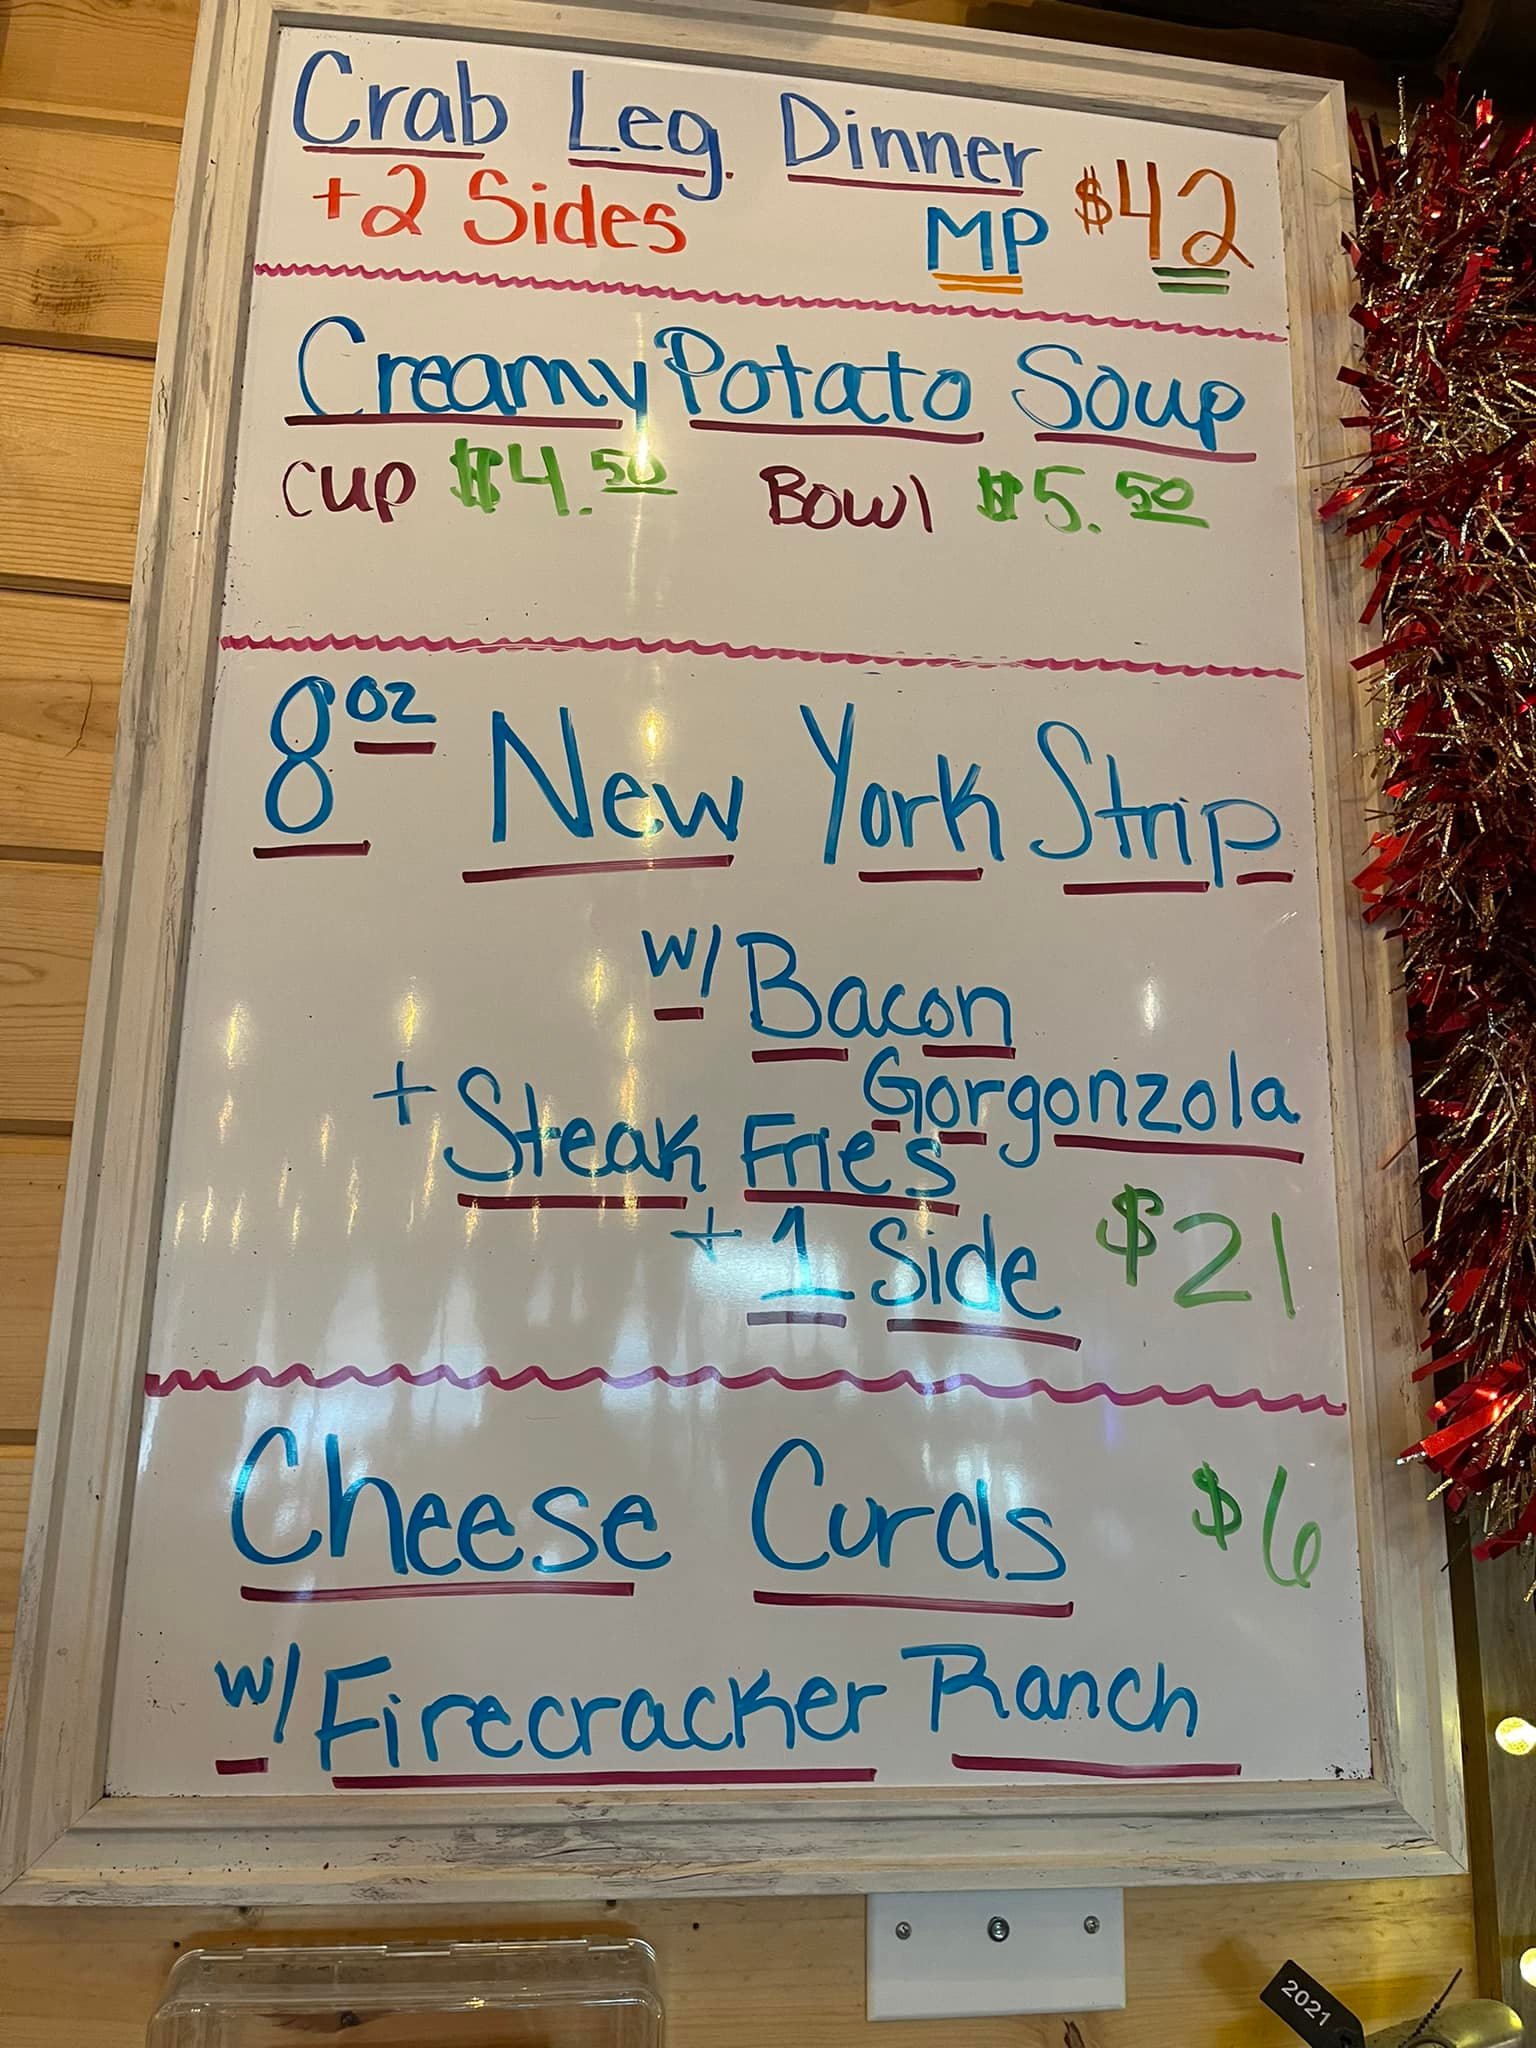 Crab Leg Dinner
+2 Sides MP $42
Creamy Potato Soup
CUP $4.50 BOWl $5.50
8oz New York Strip
w/ Bacon
Gorgonzola
+ Steak Fries
+ 1 Side $21
Cheese Curds $6
w/ Firecracker Ranch
2021